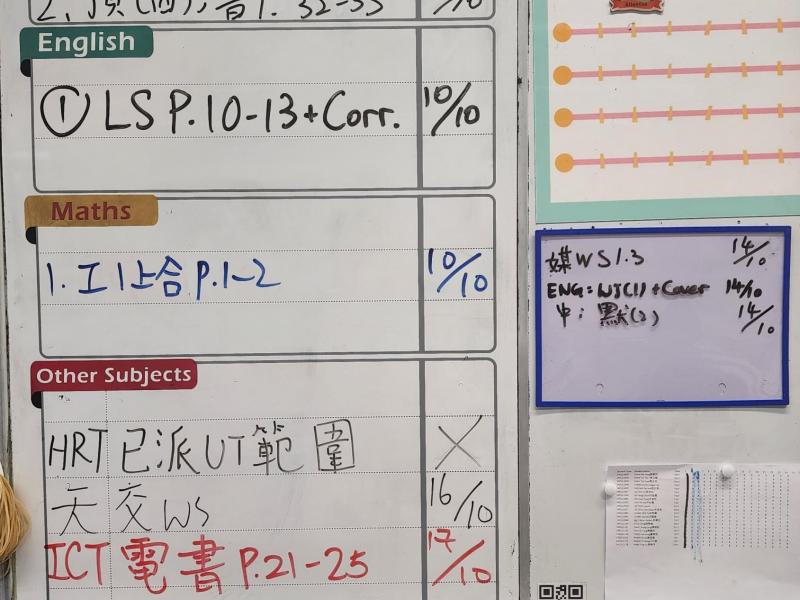 English
① LS P.10-13+Corr. 10/10
Maths
1. 工1上合 P.1-2 10/10
Other Subjects
HRT 已派UT範圍 X
天交WS 16/10
ICT 電書 P.21-25 17/10
媒WS1.3 14/10
ENG: WS(1) + Cover 14/10
中: 默(2) 14/10